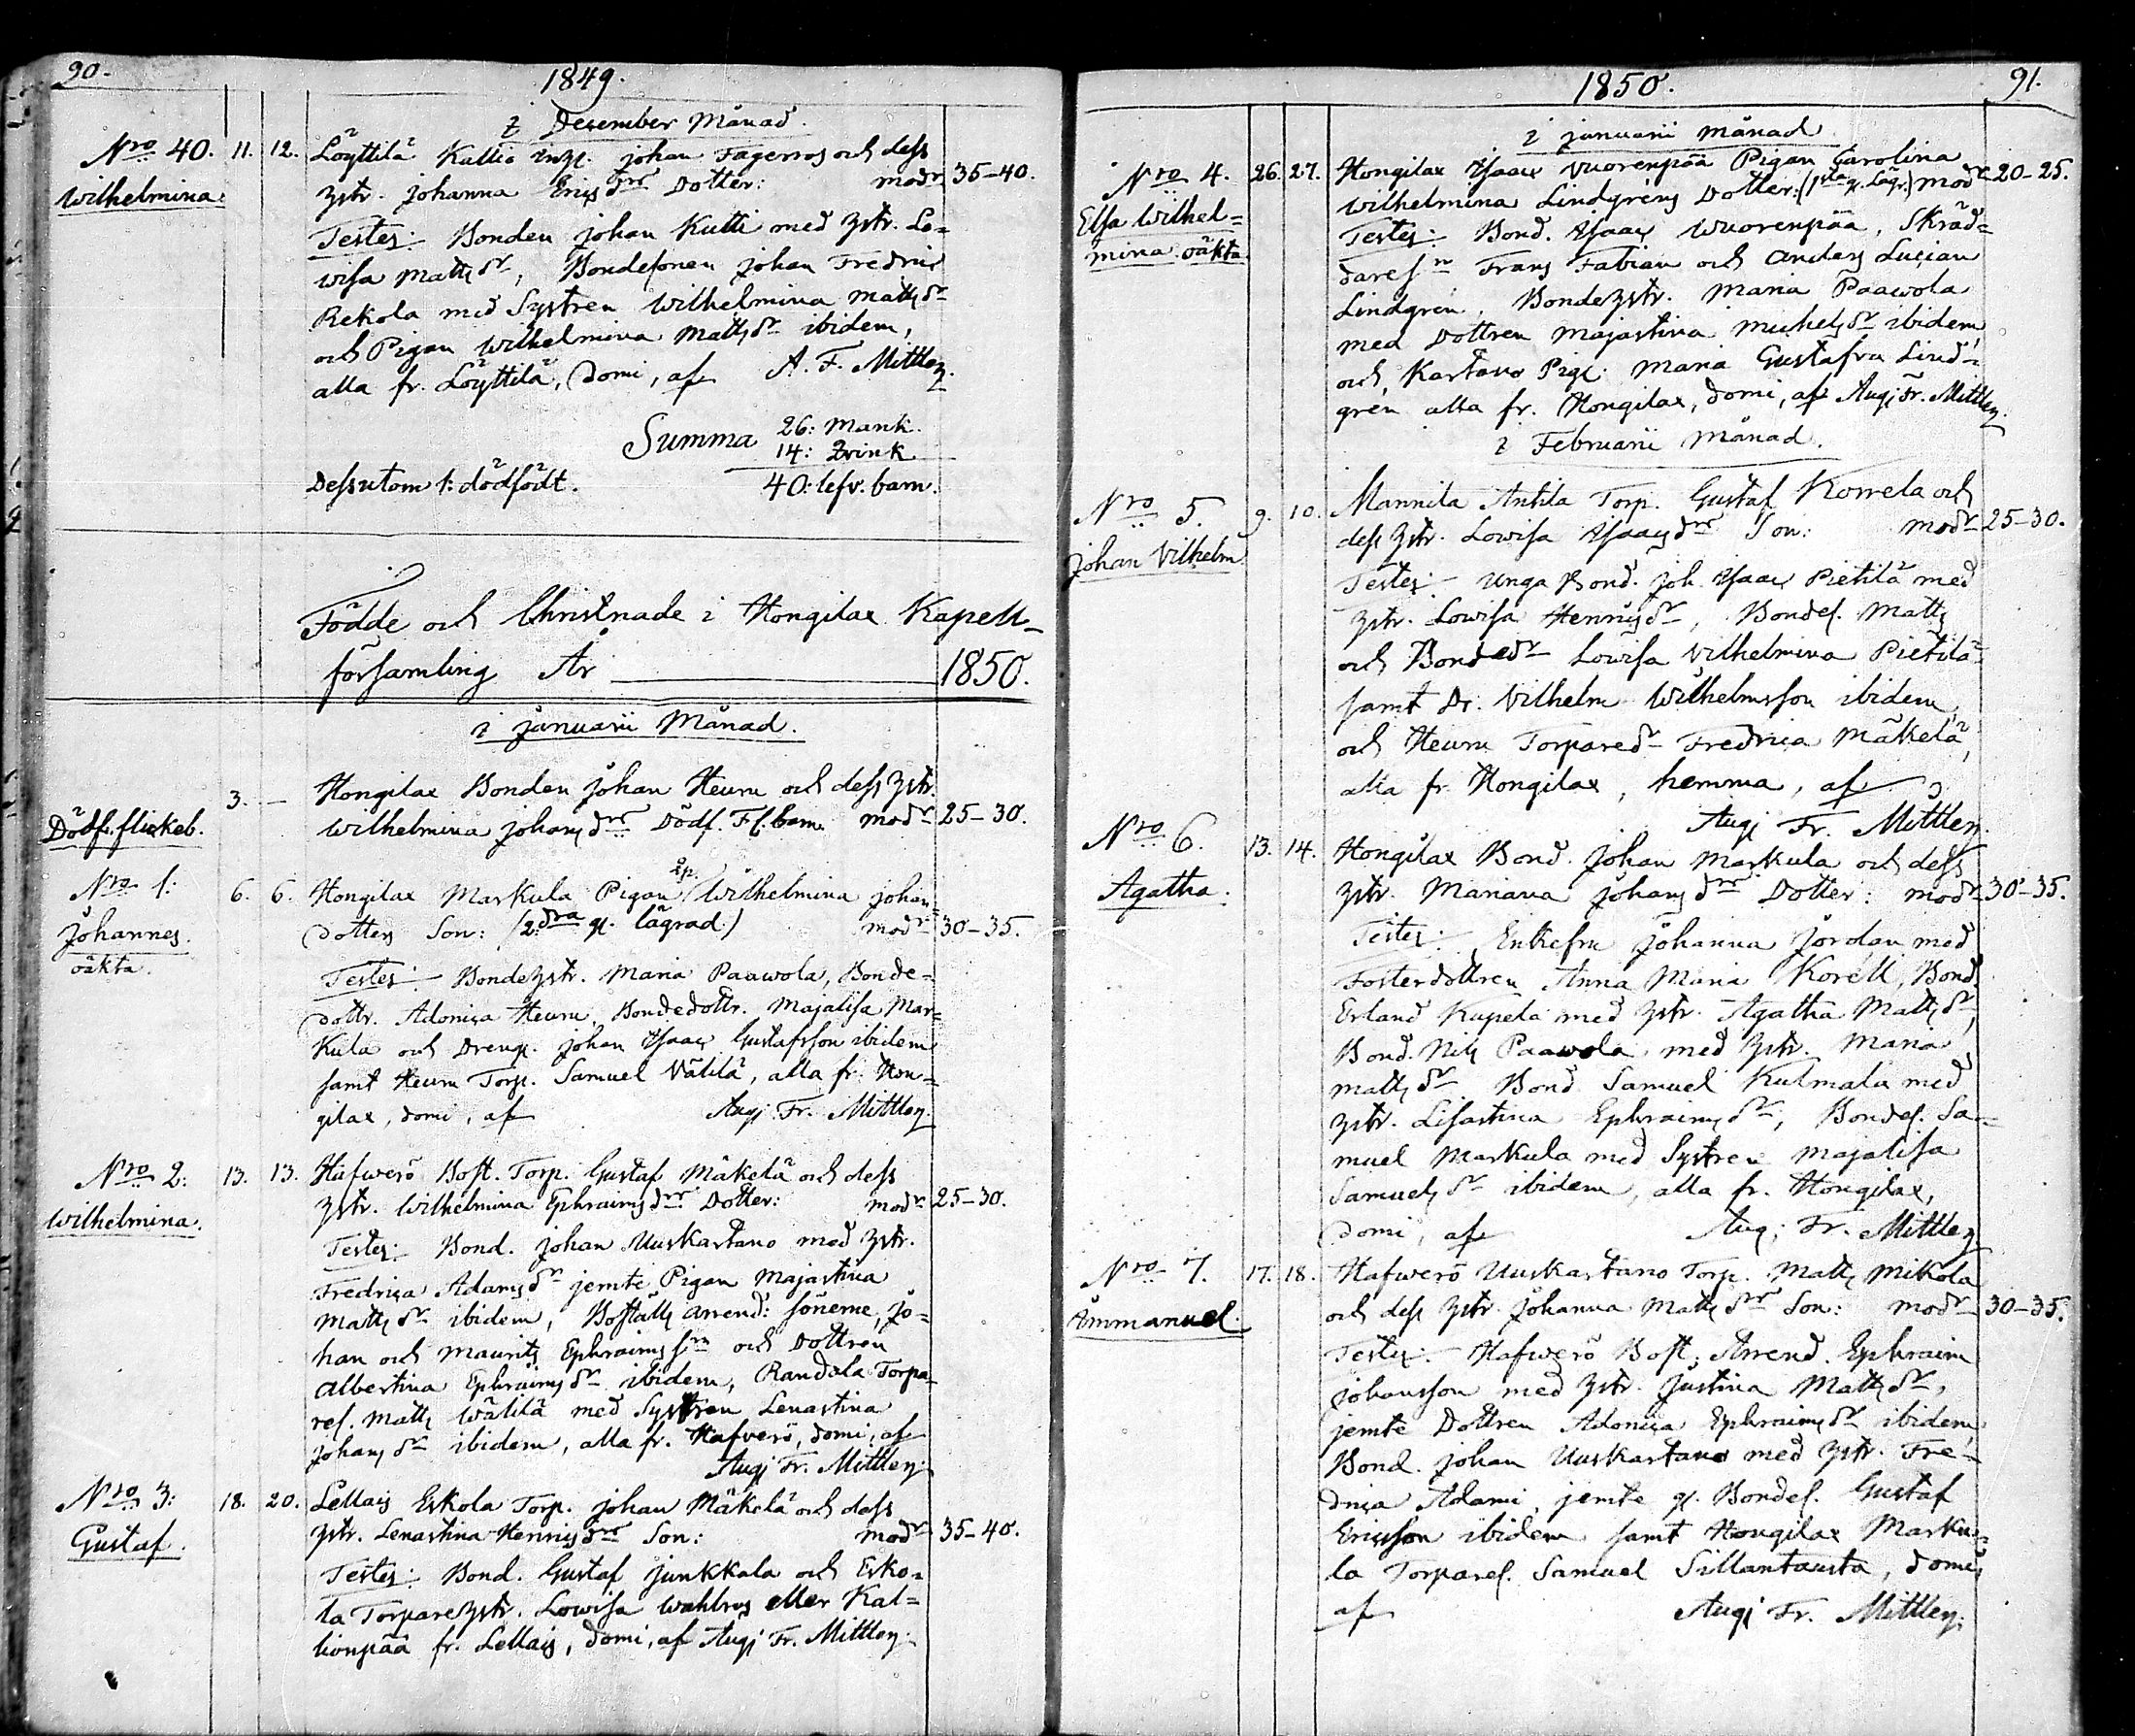 90.
1849.
i December Månad.
Nro 40. 11. 12. Löyttilä Kallio Inhys. Johan Fagerros och dess
Wilhelmina. hstr. Johanna Ericsdrs Dotter: modr 35-40.
Testes: Bonden Johan Kutti med hstr. Lo=
wisa Mattsdr, Bondesonen Johan Fredric
Rekola med Systren Wilhelmina Mattsdr
och Pigan Wilhelmina Mattsdr ibidem,
alla fr. Löyttilä, domi, af A. F. Mittler.
Summa 26: Mank.
14: Qvink.
Dessutom 1: dödfödt. 40: lefv. barn.
Födde och Christnade i Hongilax Kapell-
församling År 1850.
i Januarii Månad.
3. – Hongilax Bonden Johan Heuru och dess hstr.
Dödf. flickeb. Wilhelmina Johansdrs Dödf. Fl. barn modr 25-30.
Nro 1: 6. 6. Hongilax Markula Pigan Sp. Wilhelmina Johans=
Johannes. dotters Son: (2dra g. lägrad.) modr 30-35.
oäkta.
Testes: Bondehstr. Maria Paawola, Bonde=
dottr. Adonica Heuru, Bondedottr. Majalisa Mar=
kula och Dreng. Johan Isaac Gustafsson ibidem
samt Heuru Torp. Samuel Välilä, alla fr. Hon=
gilax, domi, af Augj Fr. Mittler.
Nro 2: 13. 13. Hafwerö Bost. Torp. Gustaf Mäkelä och dess
Wilhelmina. hstr. Wilhelmina Ephraimsdrs Dotter: modr 25-30.
Testes: Bond. Johan Uuskartano med hstr.
Fredrica Adamsdr jemte Pigan Majastina
Mattsdr ibidem, Boställs Arrend: sönerne, Jo=
han och Maurits Ephraimssn och Dottren
Albertina Ephraimsdr ibidem, Randala Torpa=
res. Matts Wälilä med Systren Lenastina
Johansdr ibidem, alla fr. Hafverö, domi, af
Augj Fr. Mittler.
Nro 3: 18. 20. Lellais Eskola Torp. Johan Mäkelä och dess
Gustaf. hstr. Lenastina Henricsdrs Son: modr 35-40.
Testes: Bond. Gustaf Junkkala och Esko=
la Torparehstr. Lowisa Wahlros eller Kal=
lionpää fr. Lellais, domi, af Augj Fr. Mittler.
1850. 91.
i Januarii Månad.
Nro 4. 26. 27. Hongilax Isaac Vuorenpää Pigan Carolina
Elsa Wilhel= Wilhelmina Lindgréns Dotter: (1sta g. Lägr.) modr 20-25.
mina oäkta. Testes: Bond. Isaac Wuorenpää, Skräd=
daressn Frans Fabian och Anders Lucian
Lindgrén, Bondehstr. Maria Paawola
med Dottren Majastina Michelsdr ibidem
och Kartano Pige. Maria Gustafva Lind=
grén alla fr. Hongilax, domi, af Augj Fr. Mittler.
i Februarii Månad.
Nro 5. 9. 10. Mannila Anttila Torp. Gustaf Korrela och
Johan Vilhelm dess hstr. Lowisa Isaacsdrs Son: modr 25-30.
Testes: Unga Bond. Joh. Isaac Pietilä med
hstr. Lowisa Henricsdr, Bondes. Matts
och Bondedr Lowisa Vilhelmina Pietilä
samt Dr. Vilhelm Wilhelmsson ibidem,
och Heuru Torparedr Fredrica Mäkelä,
alla fr. Hongilax, hemma, af
Augj Fr. Mittler.
Nro 6. 13. 14. Hongilax Bond. Johan Markula och dess
Agatha. hstr. Mariana Johansdrs Dotter: modr 30-35.
Testes: Enkefru Johanna Jordan med
Fosterdottren Anna Maria Korell, Bond.
Erland Kupela med hstr. Agatha Mattsdr,
Bond. Nils Paawola med hstr. Maria
Mattsdr Bond. Samuel Kulmala med
hstr. Lisastina Ephraimsdr, Bondes. Sa=
muel Markula med Systren Majalisa
Samuelsdr ibidem, alla fr. Hongilax,
domi, af Augj Fr. Mittler
Nro 7. 17. 18. Hafwerö Uuskartano Torp. Matts Mikola
Ammanuel. och dess hstr. Johanna Mattsdrs Son: modr 30-35.
Testes: Hafwerö Bost. Arrend. Ephraim
Johansson med hstr. Justina Mattsdr,
jemte Dottren Adonica Ephraimsdr ibidem,
Bond. Johan Uuskartano med hstr. Fre=
drica Adami, jemte g. Bondes. Gustaf
Ericsson ibidem samt Hongilax Marku=
la Torpares. Samuel Sillantausta, domi,
af Augj Fr. Mittler.